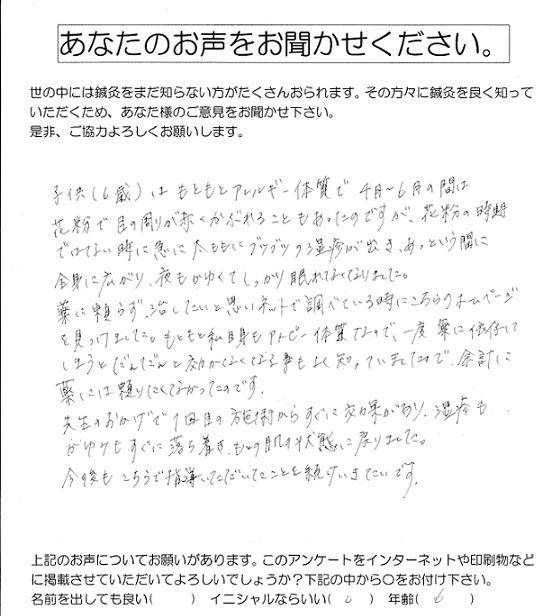 あなたのお声をお聞かせください。
世の中には鍼灸をまだ知らない方がたくさんおられます。その方々に鍼灸を良く知って
いただくため、あなた様のご意見をお聞かせ下さい。
是非、ご協力よろしくお願いします。
子供(6歳)はもともとアレルギー体質で4月〜6月の間は
花粉で目の周りが赤くかぶれることもあったのですが、花粉の時期
ではない時に急に太ももにブツブツの湿疹が出き、あっという間に
全身に広がり、夜もかゆくてしっかり眠れなくなりました。
薬に頼らず、治したいと思いネットで調べている時にこちらのホームページ
を見つけました。もともと私自身もアトピー体質なので、一度薬に依存して
しまうとだんだんと効かなくなる事もよく知っていましたので、余計に
薬には頼りたくなかったのです。
先生のおかげで1回目の施術からすぐに効果があり、湿疹も
かゆみもすぐに落ち着き、もとの肌の状態に戻りました。
今後もこちらで指導いただいたことを続けいきたいです。
上記のお声についてお願いがあります。このアンケートをインターネットや印刷物など
に掲載させていただいてよろしいでしょうか?下記の中から○をお付け下さい。
名前を出しても良い( ) イニシャルならいい( o ) 年齢( 6 )